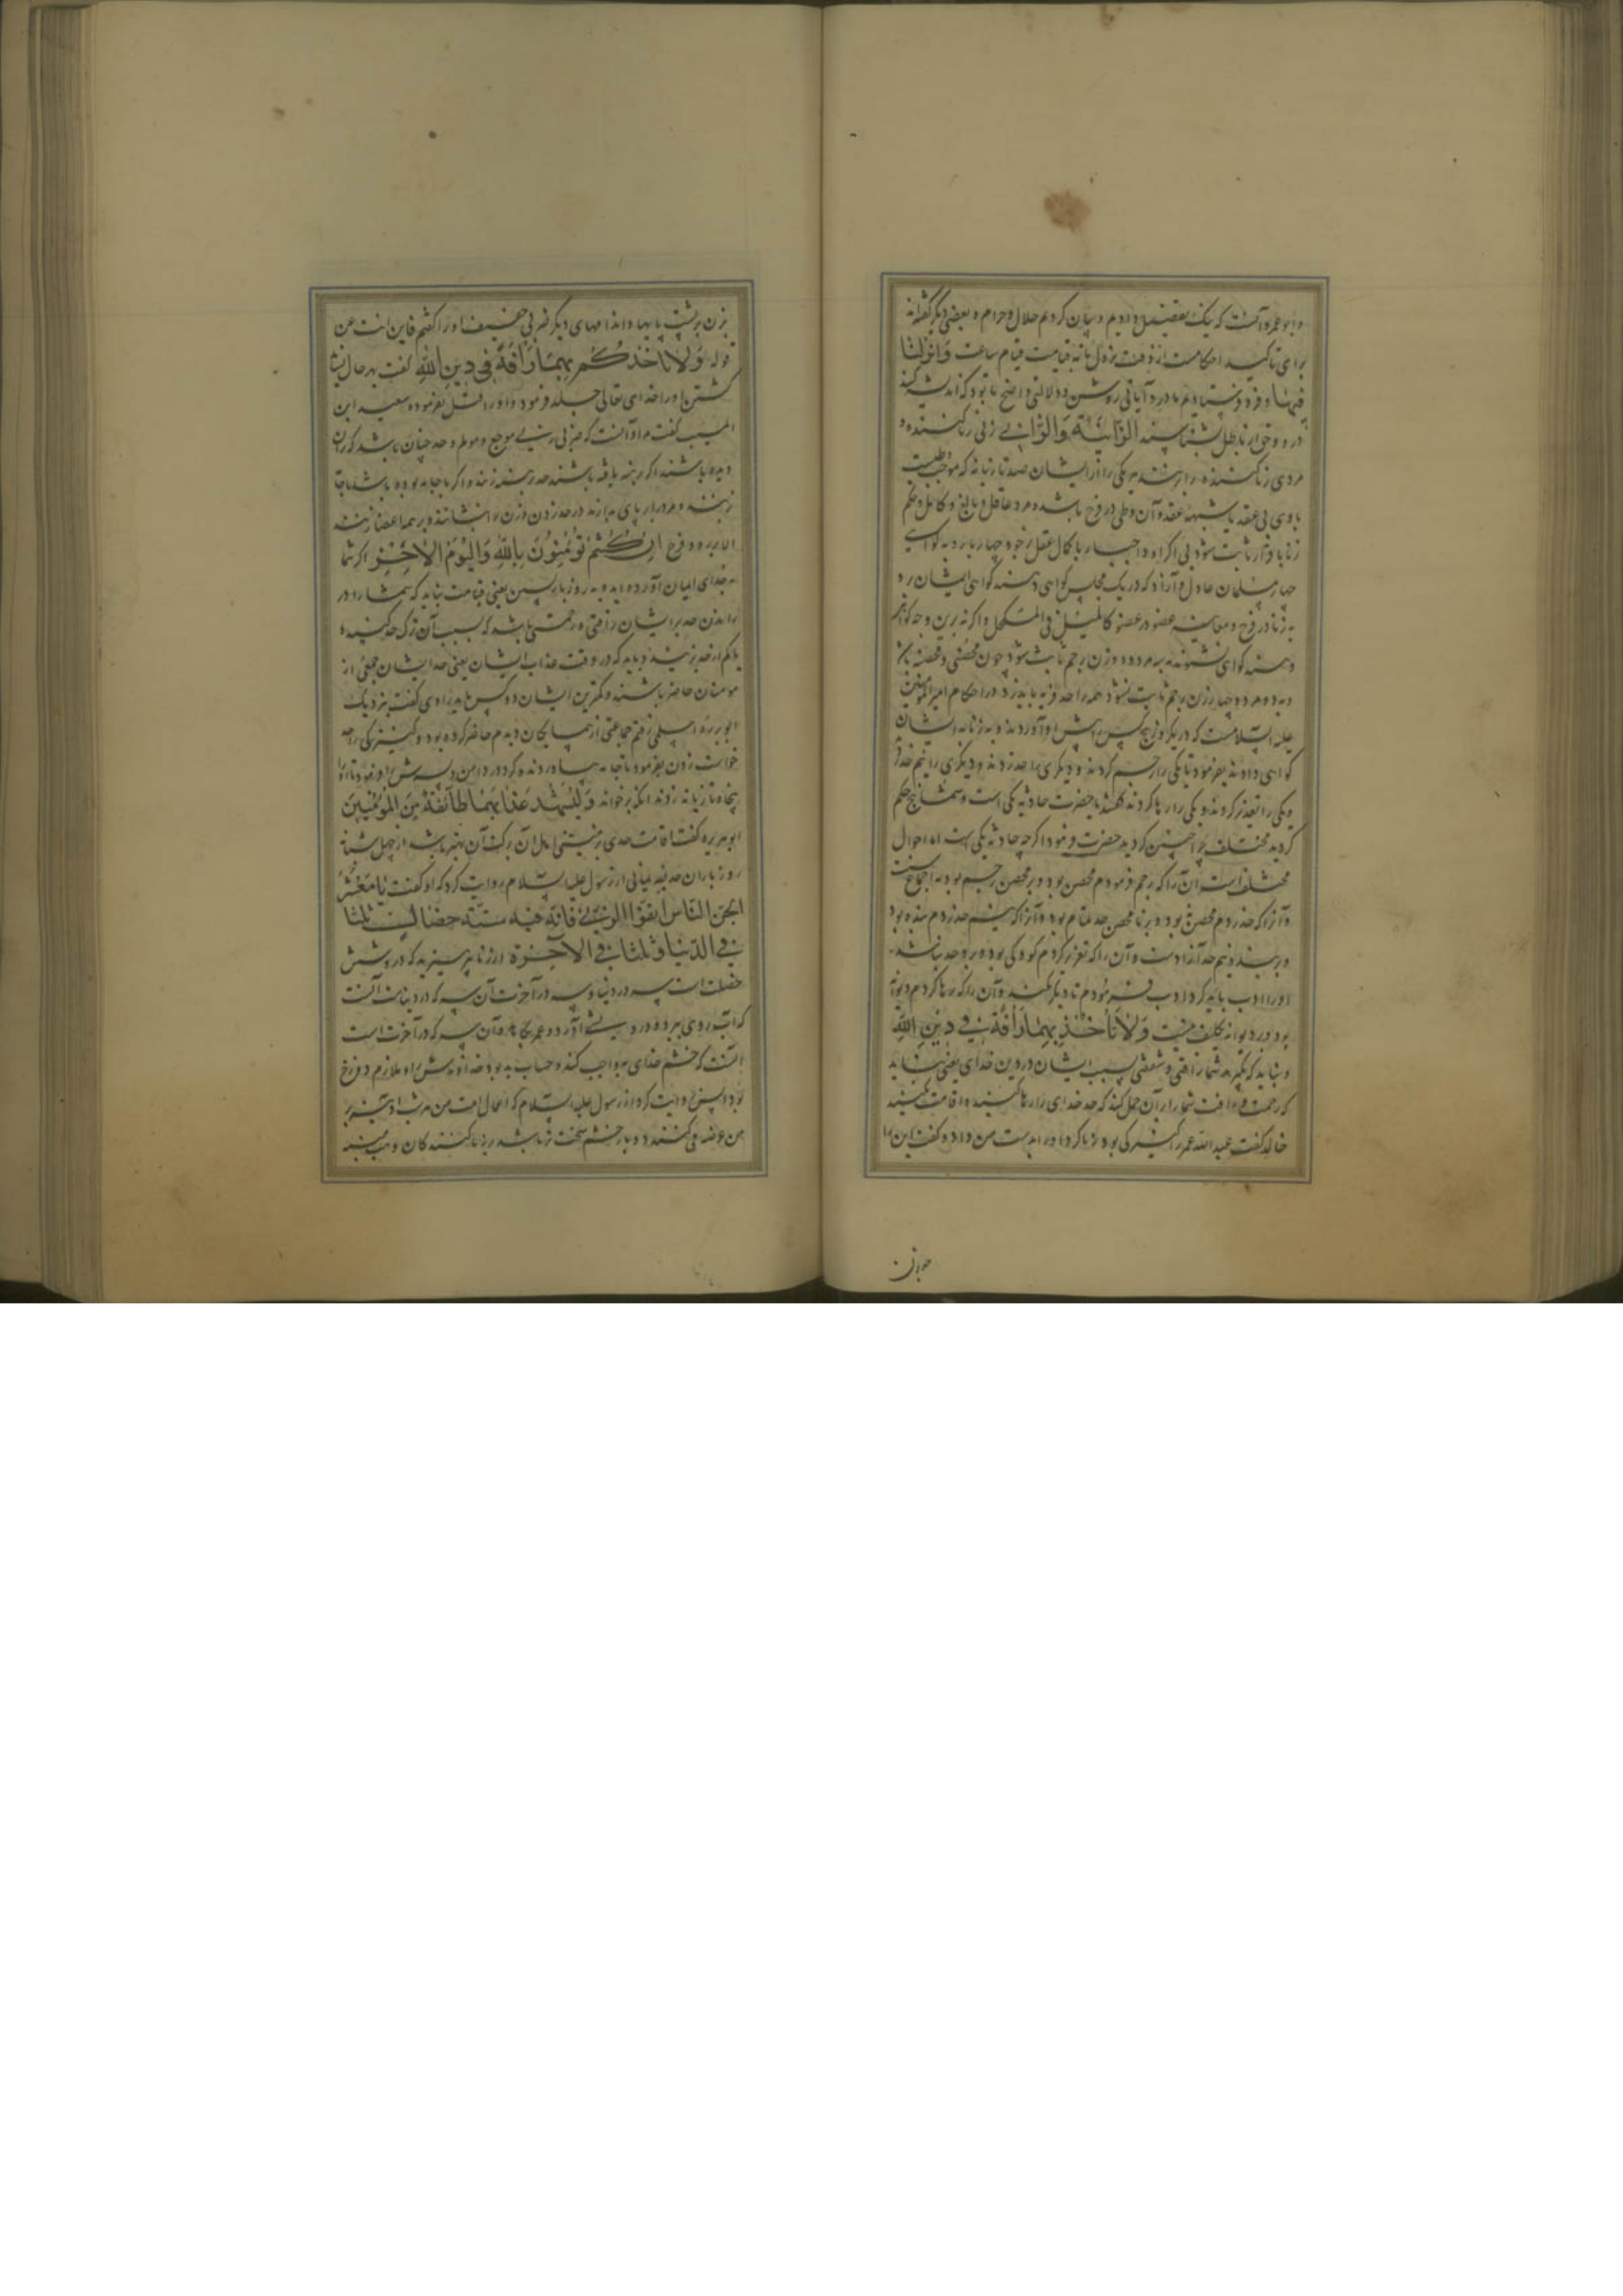 و ابو عمرو آنست که نیک تفصیل دادیم و بیان کردیم حلال و حرام و بعضی دیگر گفته‌اند
برای تاکید احکامست از وقت نزول تا به قیامت قیام ساعت وَانزلنا
فیها و فرو فرستادیم در و آیاتی روشن و دلالتی واضح تا بود که اندیشه کنند
در و و حق از باطل بشناسند الزَّانیَةُ وَالزّانی زنی زنا کننده و
مردی زنا کننده را بزنند هر یکی را از ایشان صد تازیانه که موجب
با وی بی عقد یا شبهه عقد و آن وطی در فرج باشد و مرد عاقل و بالغ و کامل و حکم
زنا با قرار ثابت شود بی اکراه و اجبار با کمال عقل بر خود چهار بار و به گواهی
چهار مسلمان عادل و آزاد که در یک مجلس گواهی دهند گواهی ایشان بر
به زنا در فرج و معاینه عضو در عضو کالمیل فی المکحل و اگر نه برین وجه گواهی
دهند گواهی نشنوند به سه مرد و دو زن رجم ثابت شود چون محصن و محصنه باشد
و به دو مرد و چهار زن رجم ثابت نشود همه را حد فریه باید زد در احکام امیر المومنین
علیه السلامست که در یک روز پنج کس را پیش او آوردند و به زنا بر ایشان
گواهی دادند بفرمود تا یکی را رجم کردند و دیگری را حد زدند و دیگری را نیم حد
و یکی را تعزیر کردند و یکی را رها کردند گفتند یا حضرت حادثه یکی است و شما پنج حکم
کردید مختلف چرا چنین کردید حضرت فرمود اگر چه حادثه یکی است اما احوال
مختلف است آن را که رجم فرمودم محصن بود و بر محصن رجم بود به اجماع
و آن را که حد زدم محصن بود و بر نا محصن حد تمام بود و آن را که نیم حد زدم بنده بود
و بر بنده نیم حد آزادست و آن را که تعزیر کردم کودکی بود و بر و حد نباشد
او را ادب باید کرد ادب فرمودم تا دیگر نکند و آن را که رها کردم دیوانه
بود و بر دیوانه تکلیف نیست وَلاٰ تَأخُذکم بِهِمٰا رَأفَةٌ فی دینِ اللهِ
و نباید که بگیرد شما را رافتی و شفقتی بسبب ایشان در دین خدای یعنی نباید
که رحمت و رافت شما را بر آن حمل کند که حد خدای را رها کنید و اقامت نکنید
خالد گفت عبد الله عمر را کنیزکی بود زنا کرد او را بدست من داد و گفت این را
بزن بر پشت پایها و اندامهای دیگر ضربی خفیف او را گفتم فاین انت عن
قوله وَلا تاخذکُم بِهِمَا رَأفَةٌ فی دِینِ اللهِ گفت بهر حال
کشتن او را خدای تعالی جلد فرمود و او را قتل نفرموده سعید ابن
المسیب گفت مراد آنست که ضربی زنند موجع و مولم و حد چنان باشد که زان
دیده باشند اگر برهنه یافته باشند حد برهنه زنند و اگر با جامه بوده باشد با جامه
زنند و مرد را بر پای بدارند در حد زدن و زن را بنشانند و بر همه اعضا زنند
الا بر رو و فرج اِن کُنتُم تُؤمِنُونَ بِاللهِ وَالیَومِ الاٰخِرِ اگر شما
به خدای ایمان آورده‌اید و به روز بازپسین یعنی قیامت نباید که شما را در
راندن حد بر ایشان رافتی و رحمتی باشد که بسبب آن ترک حد کنید
یا کم از حد بزنید و باید که در وقت عذاب ایشان یعنی حد ایشان جمعی از
مومنان حاضر باشند و کمترین ایشان دو کس باید راوی گفت بنزدیک
ابو برزه اسلمی رفتم جماعتی از همسایگان دیدم حاضر کرده بود و کنیزکی را حد
خواست زدن بفرمود تا جامه بیاوردند و کرد در دامن و پسرش را فرمود تا او را
پنجاه تازیانه زدند آنگه بر خواند وَلیَشهَد عَذابَهُمٰا طٰائِفَةٌ مِنَ المُؤمِنینَ
ابو هریره گفت اقامت حدی بر زمینی اهل آن را بهتر باشد از چهل شبانه
روز باران حذیفه یمانی از رسول علیه السلام روایت کرد که او گفت یٰا مَعشَرَ
النّاس اتقوا الزنیٰ فَانّهُ فیه ستّة خصٰال ثلثا
فی الدّنیا وَثلثا فی الاٰخرة از زنا بپرهیزید که در و شش
خصلت است سه در دنیا و سه در آخرت آن سه که در دنیاست آنست
که آب روی ببرد و درویشی آورد و عمر بکاهد و آن سه که در آخرت است
آنست که خشم خدای واجب کند و حساب بد بود خداوندش را و ملازم دوزخ
بود انس روایت کرد از رسول علیه السلام که اعمال امت من هر شب ادینه بر
من عرضه می کنند دو بار خشم سخت تر باشد بر زنا کنندگان و همسایه
جوزن